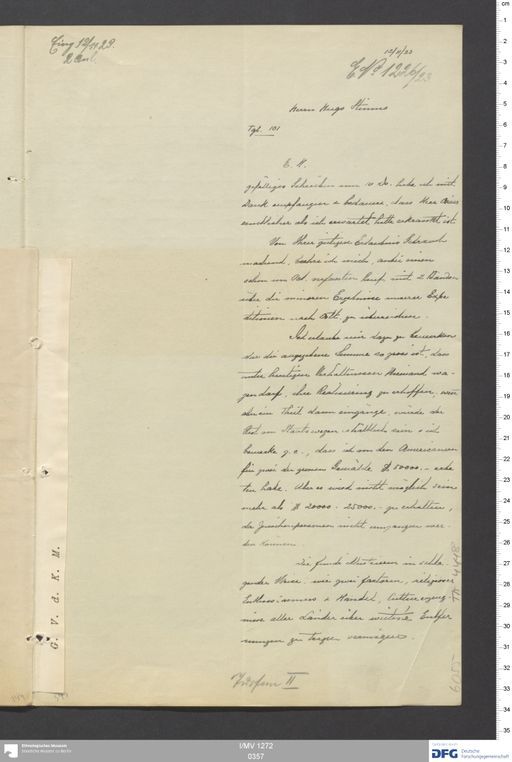 Eing 12/11 23.
2 Anl.
12/11/23
E No 1226/23
Herrn Hugo Stinnes
Tgb. 101
E. H.
gefälliges Schreiben vom v Ds. habe ich mit
Dank empfangen & bedauere, dass Herr
ernstlicher als ich erwartet hatte erkrankt ist.
Von Ihrer gütigen Erlaubnis Gebrauch
machend, beehre ich mich, anbei meinen
schon im Okt. verfassten Brief, mit 2 Bänden
über die inneren Ergebnisse unserer Expe
ditionen nach Ostt. zu überreichen.
Ich erlaube mir dazu zu bemerken
dass die angegebene Summe so gross ist, dass
unter heutigen Verhältnissen Niemand wa-
gen darf, ihre Realisierung zu erhoffen, wenn
aber ein Theil davon eingänge, würde der
Rest von Staatswegen erhältlich sein & ich
bemerke z. B., dass ich von den Amerikanern
für zwei der grossen Gemälde $ 50000.- erbe
ten habe. Aber es wird nicht möglich sein
mehr als $ 20000 - 25000.- zu erhalten,
da Zwischenpersonen nicht umgangen wer-
den können.
Die Funde illustrieren in schla-
gender Weise, wie zwei Faktoren, religiöser
Enthusiasmus & Handel, Culturerzeug-
nisse aller Länder über weiteste Entfer
nungen zu tragen vermögen.
Turfan II
G. V. d. K. M.
TA 4448
6055
I/MV 1272
0357
Ethnologisches Museum
Staatliche Museen zu Berlin
Gefördert durch
DFG Deutsche
Forschungsgemeinschaft